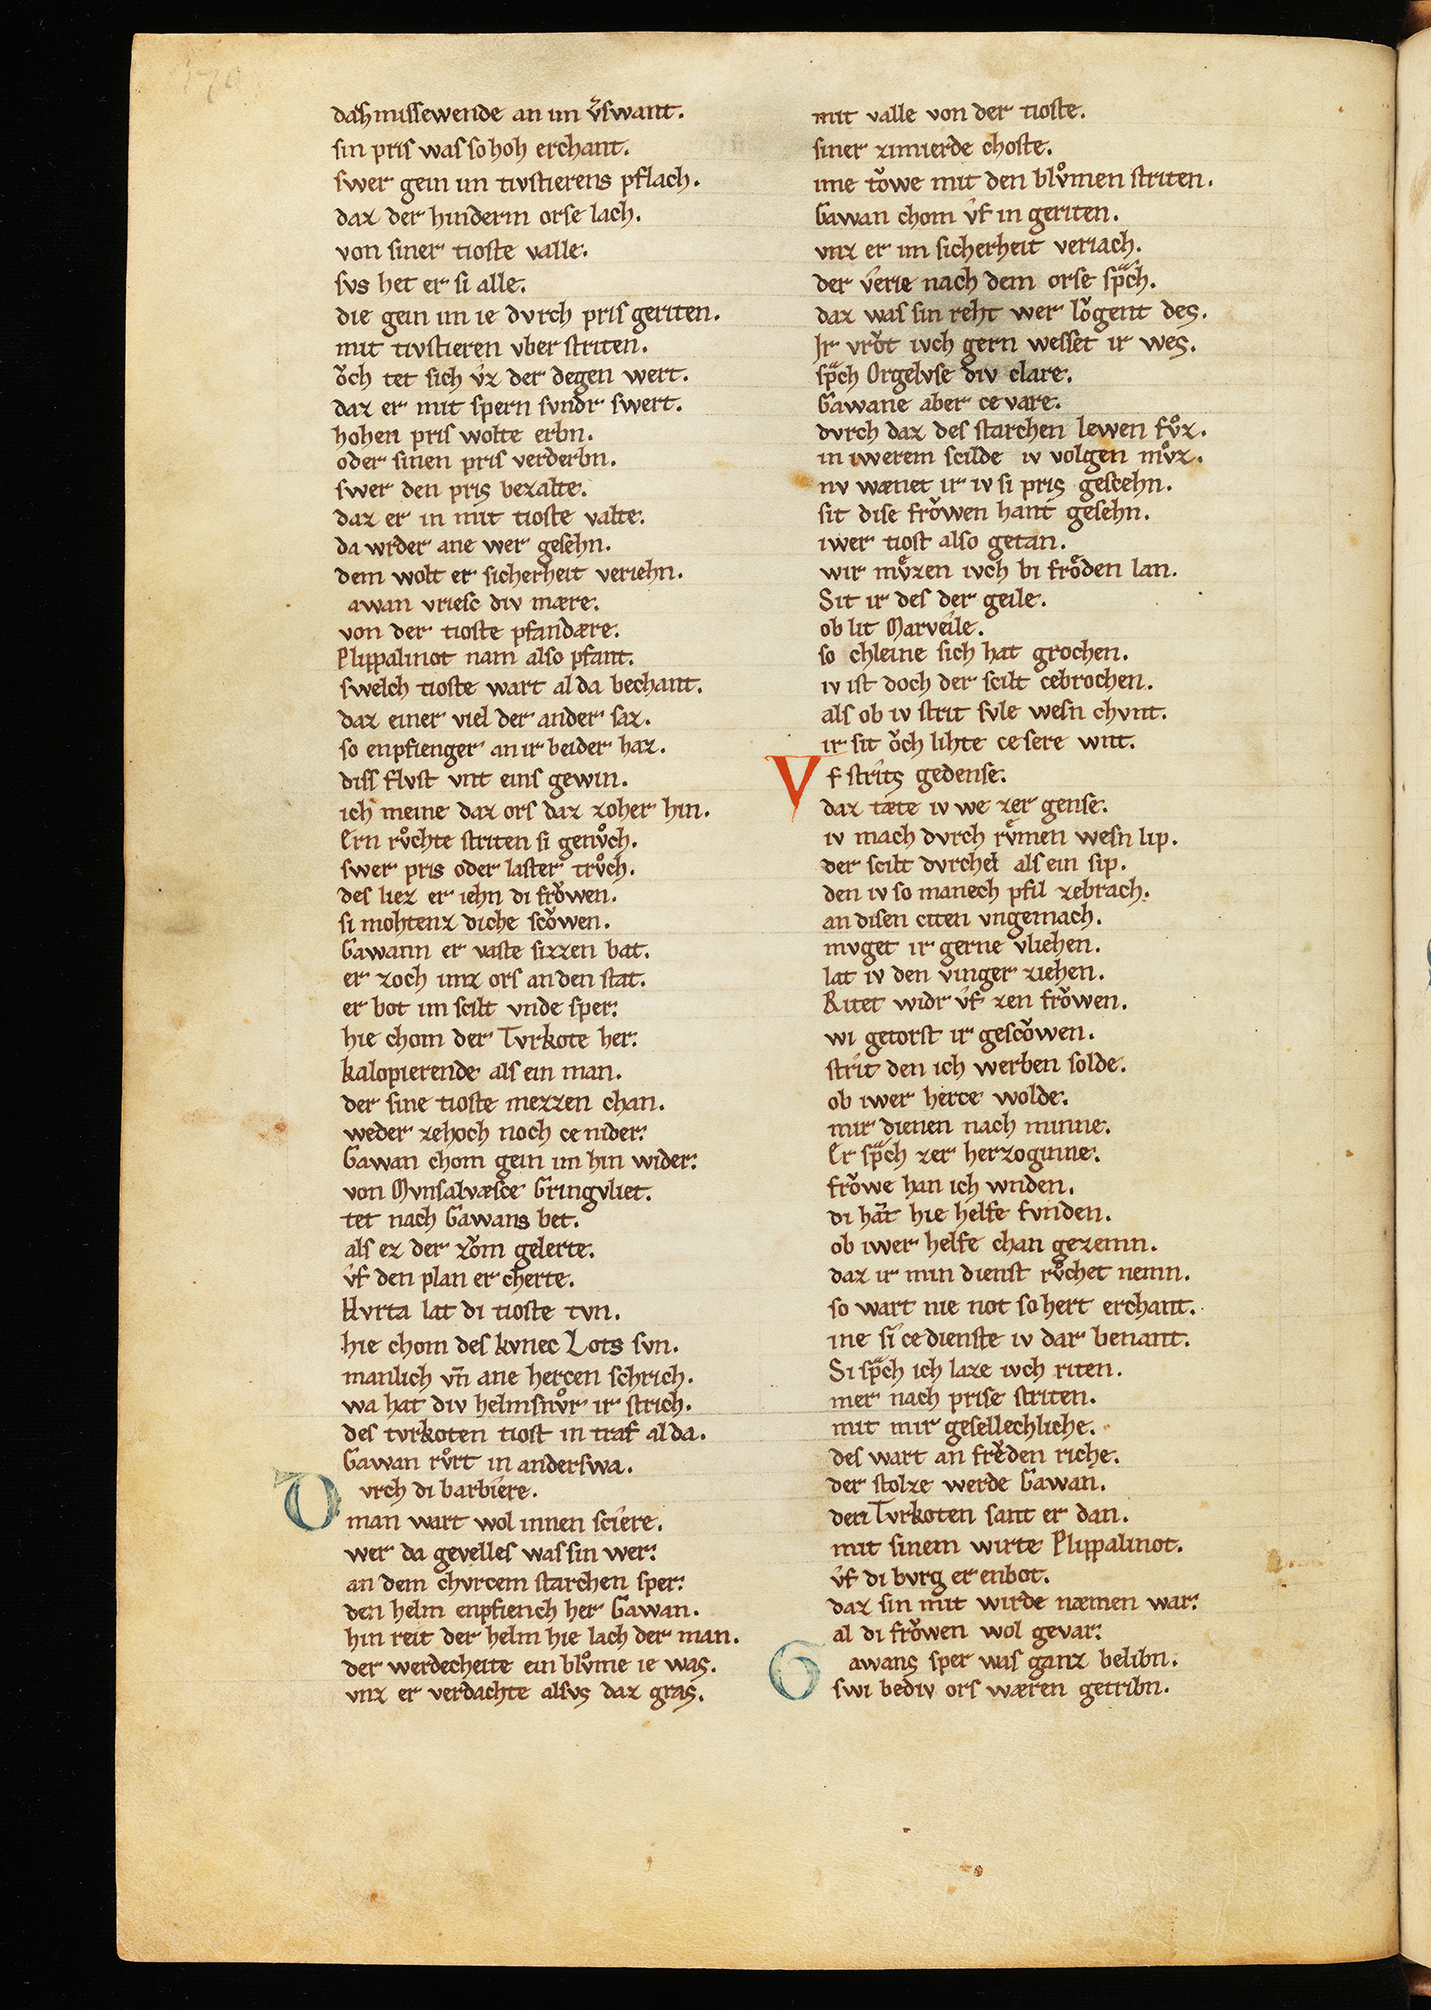 170
daʒ missewende an im v̾swant.
sin pris was so hoh erchant.
swer gein im tivstierens pflach.
daz der hinderm orse lach.
von siner tioste valle.
svs het er si alle.
die gein im ie dvrch pris geriten.
mit tivstieren vber striten.
ǒch tet sich vz der degen wert.
daz er mit spern svndr swert.
hohen pris wolte erbn.
oder sinen pris verderbn.
swer den pris bezalte.
daz er in mit tioste valte.
da wrder ane wer gesehn.
dem wolt er sicherheit veriehn.
awan vriesc div mære.
von der tioste pfandære.
Plippalinot nam also pfant.
swelch tioste wart al da bechant.
daz einer viel der ander saz.
so enpfienger an ir beider haz.
diss flvst vnt eins gewin.
ich meine daz ors daz zoher hin.
Ern rv̊chte striten si genv̊ch.
swer pris oder laster trv̊ch.
des liez er iehn di frǒwen.
si mohtenz diche scǒwen.
Gawann er vaste sizzen bat.
er zoch imz ors an den stat.
er bot im scilt vnde sper.
hie chom der Tvrkote her.
kalopierende als ein man.
der sine tioste mezzen chan.
weder zehoch noch ce nider.
Gawan chom gein im hin wider.
von Mvnsalvæsce Gringvliet.
tet nach Gawans bet.
als ez der zǒm gelerte.
vf den plan er cherte.
Hvrta lat di tioste tvn.
hie chom des kvnec Lots svn.
manlich vn̄ ane hercen schrich.
wa hat div helmsnv̊r ir strich.
des tvrkoten tiost in traf al da.
Gawan rv̊rt in anderswa.
Dvrch di barbiere.
man wart wol innen sciere.
wer da gevelles was sin wer.
an dem chvrcem starchen sper.
den helm enpfiench her Gawan.
hin reit der helm hie lach der man.
der werdecheite ein blv̊me ie was.
vnz er verdachte alsvs daz gras.
mit valle von der tioste.
siner zimierde choste.
ime tǒwe mit den blv̊men striten.
Gawan chom vf in geriten.
vnz er im sicherheit veriach.
der verie nach dem orse spͣch.
daz was sin reht wer lǒgent des.
Ir vrǒt ivch gern wesset ir wes.
spͣch Orgelvse div clare.
Gawane aber ce vare.
dvrch daz des starchen lewen fv̊z.
in iwerem scilde iv volgen mv̊z.
nv wænet ir iv si pris gescehn.
sit dise frǒwen hant gesehn.
iwer tiost also getan.
wir mv̊zen ivch bi frǒden lan.
Sit ir des der geile.
ob lit Marveile.
so chleine sich hat grochen.
iv ist doch der scilt cebrochen.
als ob iv strit svle wesn chvnt.
ir sit ǒch lihte ce sere wnt.
Vf strits gedense.
daz tæte iv we zer gense.
iv mach dvrch rv̊men wesn lip.
der scilt dvrchel als ein sip.
den iv so manech pfil zebrach.
an disen citen vngemach.
mvget ir gerne vliehen.
lat iv den vinger ziehen.
Ritet widr vf zen frǒwen.
wi getorst ir gescǒwen.
strit den ich werben solde.
ob iwer herce wolde.
mir dienen nach minne.
Er spͣch zer herzoginne.
frǒwe han ich wnden.
di hat hie helfe fvnden.
ob iwer helfe chan gezemn.
daz ir min dienst rv̊chet nemn.
so wart nie not so hert erchant.
ine si ce dienste iv dar benant.
Si spͣch ich laze ivch riten.
mer nach prise striten.
mit mir gesellechliche.
des wart an frěden riche.
der stolze werde Gawan.
den Tvrkoten sant er dan.
mit sinem wirte Plippalinot.
vf di bvrg er enbot.
daz sin mit wirde næmen war.
al di frǒwen wol gevar.
Gawans sper was ganz belibn.
swi bediv ors wæren getribn.